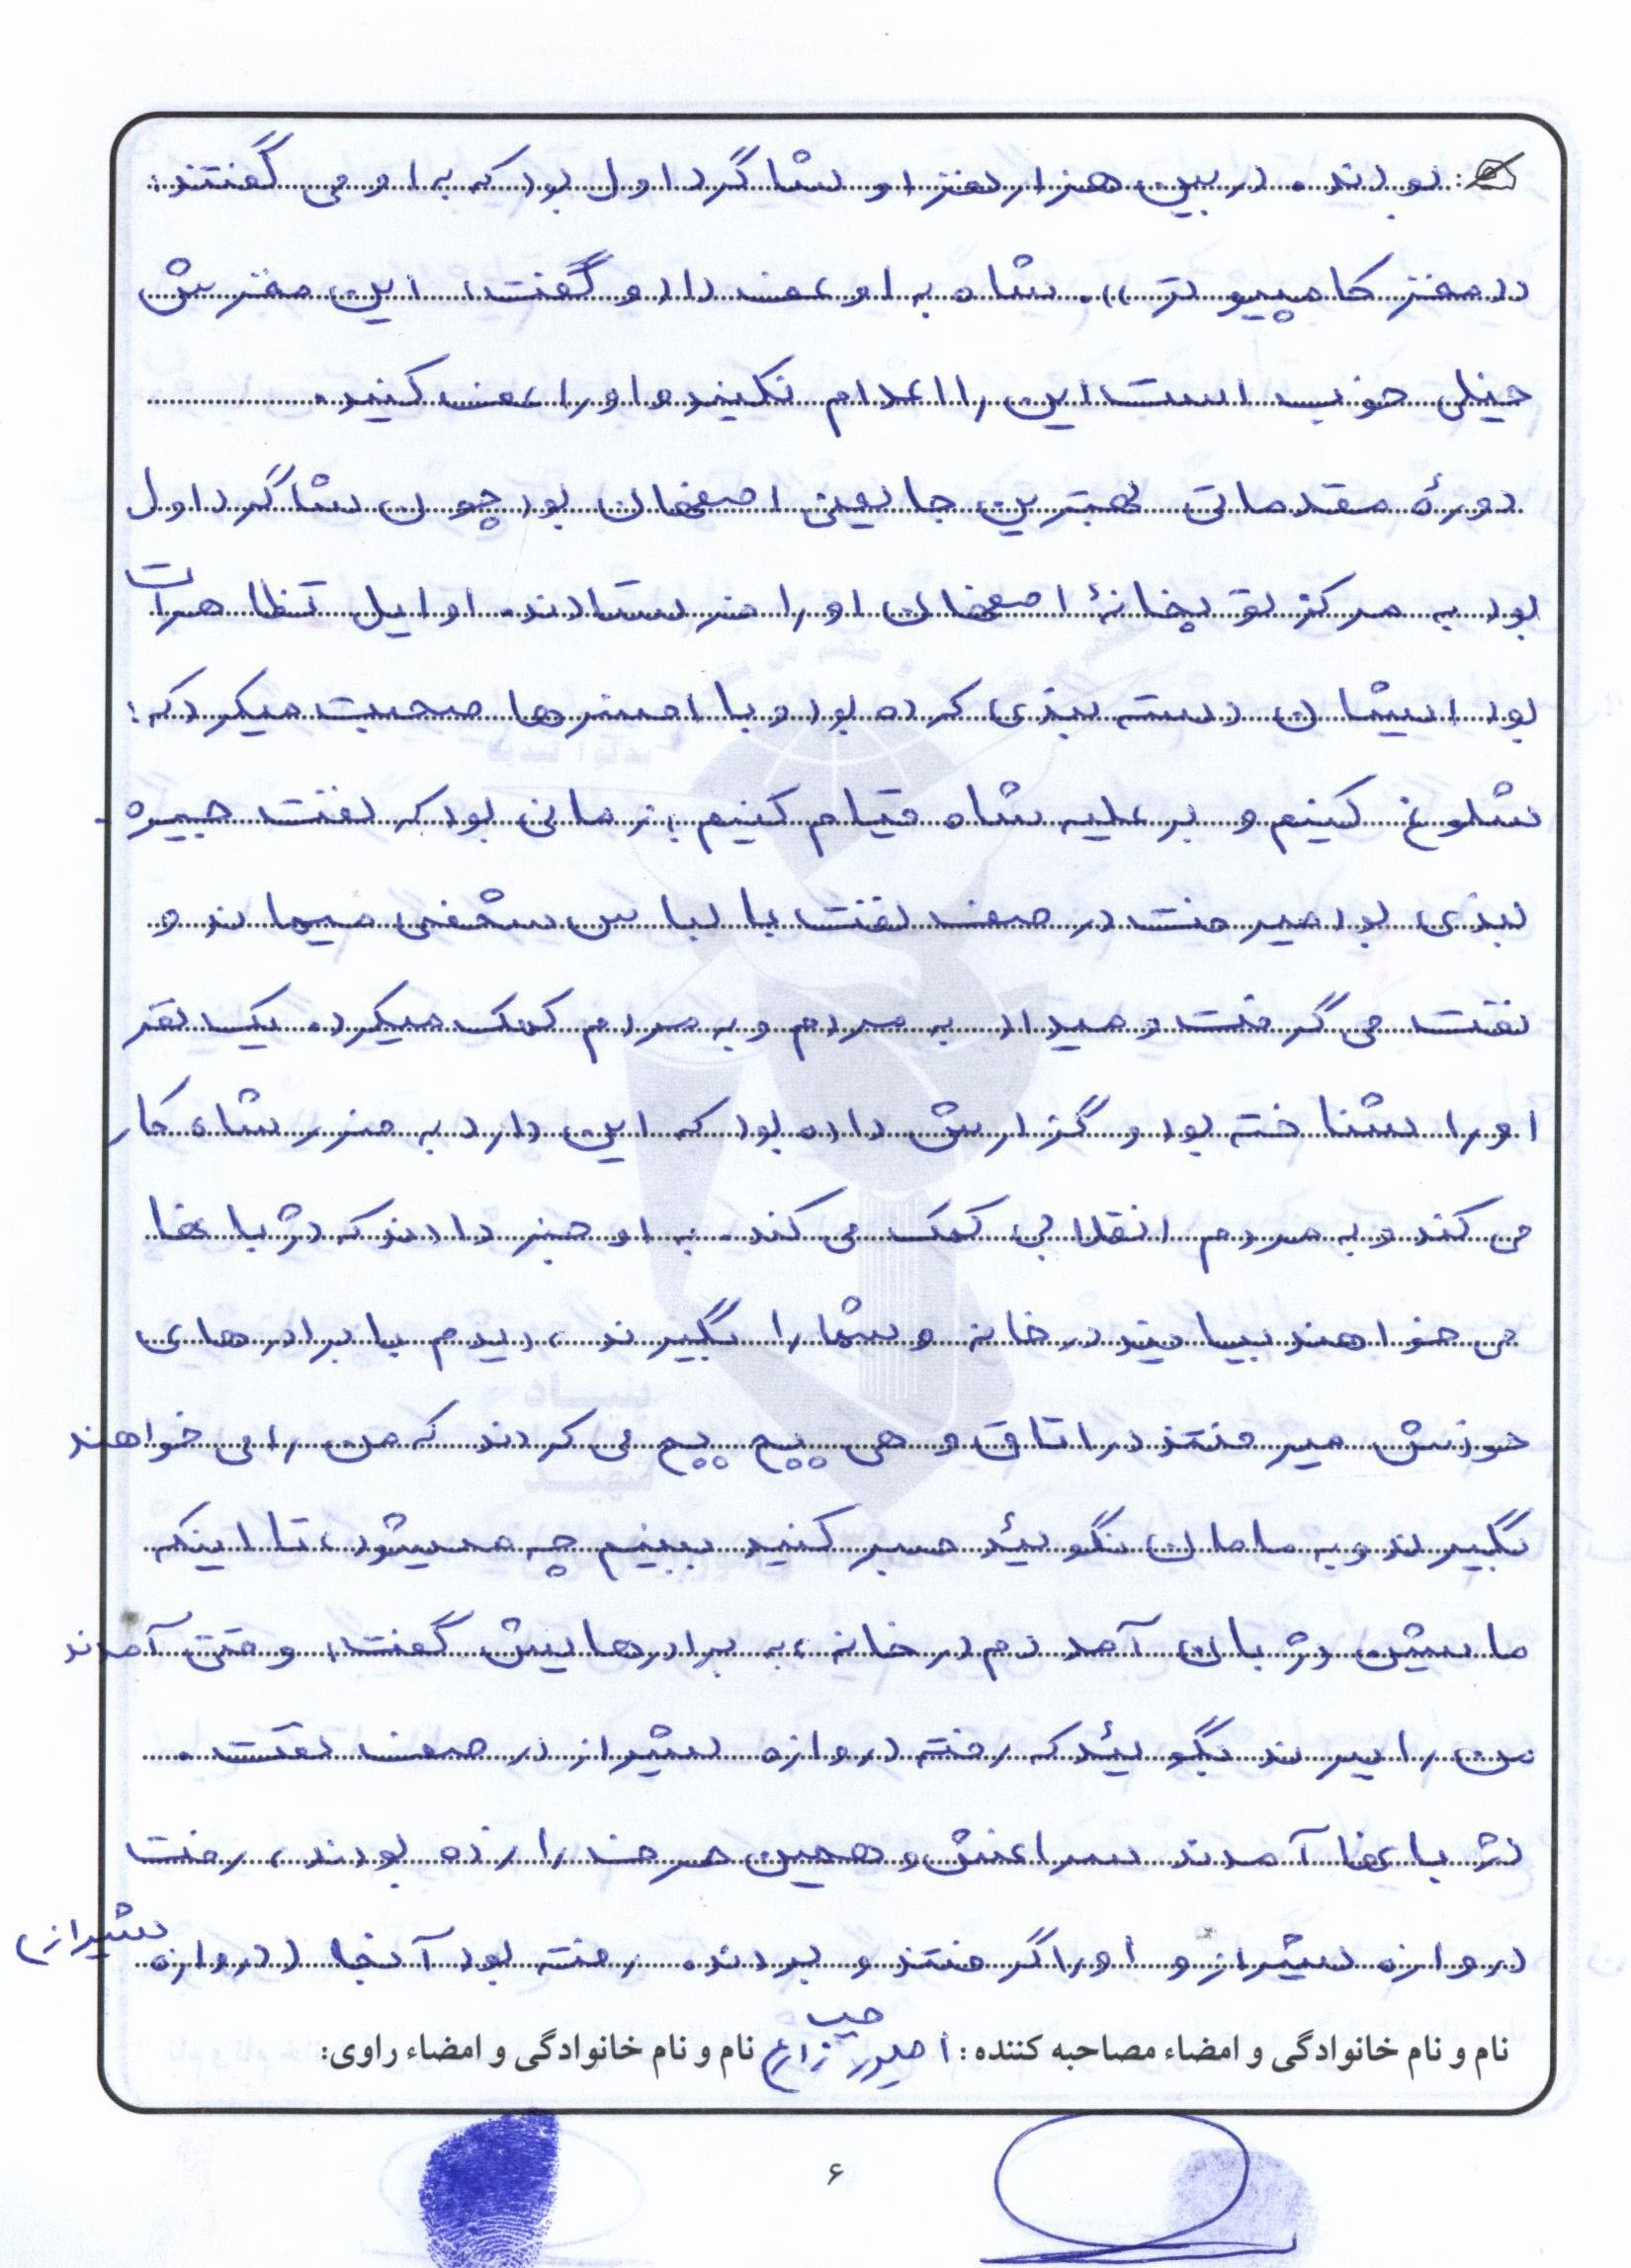 بودند. در بین هزار نفر او شاگرد اول بود که به او می گفتند:
((مغز کامپیوتر)). شاه به او عفو داد و گفت، این مغزش
خیلی خوب است این را اعدام نکنید و او را عفو کنید.
دورهٔ مقدماتی بهترین جا یعنی اصفهان بود چون شاگرد اول
بود به مرکز توپخانهٔ اصفهان او را فرستادند. اوایل تظاهرات
بود ایشان دسته بندی کرده بود و با افسرها صحبت میکرد که:
شلوغ کنیم و بر علیه شاه قیام کنیم؛ زمانی بود که نفت جیره
بندی بود میرفت در صف نفت با لباس شخصی میماند و
نفت می گرفت و میداد به مردم و به مردم کمک میکرد. یک نفر
او را شناخته بود و گزارش داده بود که این دارد به ضرر شاه کار
می کند و به مردم انقلابی کمک می کند. به او خبر دادند که دژبانها
می خواهند بیایند در خانه و شما را بگیرند، دیدم با برادرهای
خودش میرفتند در اتاق و هی پچ پچ می کردند که من را می خواهند
بگیرند و به مامان نگوئید صبر کنید ببینیم چه میشود، تا اینکه
ماشین دژبان آمد دم در خانه، به برادرهایش گفت، وقتی آمدند
من را ببرند بگوئید که رفته دروازه شیراز در صف نفت.
دژبانها آمدند سراغش و همین حرف را زده بودند، رفت
دروازه شیراز و او را گرفتند و بردند. رفته بود آنجا (دروازه شیراز)
نام و نام خانوادگی و امضاء مصاحبه کننده: نام و نام خانوادگی و امضاء راوی:
۶